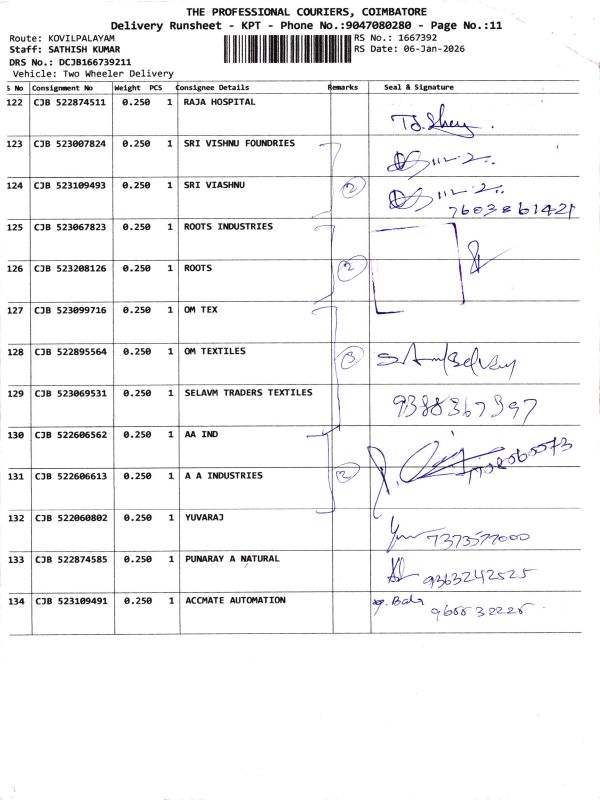 THE PROFESSIONAL COURIERS, COIMBATORE
Delivery Runsheet - KPT - Phone No.:9047080280 - Page No.:11
Route: KOVILPALAYAM RS No.: 1667392
Staff: SATHISH KUMAR RS Date: 06-Jan-2026
DRS No.: DCJB166739211
Vehicle: Two Wheeler Delivery
S No Consignment No Weight PCS Consignee Details Remarks Seal & Signature
122 CJB 522874511 0.250 1 RAJA HOSPITAL
123 CJB 523007824 0.250 1 SRI VISHNU FOUNDRIES
124 CJB 523109493 0.250 1 SRI VIASHNU 2
7603861421
125 CJB 523067823 0.250 1 ROOTS INDUSTRIES
126 CJB 523208126 0.250 1 ROOTS 2
127 CJB 523099716 0.250 1 OM TEX
128 CJB 522895564 0.250 1 OM TEXTILES 3
129 CJB 523069531 0.250 1 SELAVM TRADERS TEXTILES
9388367397
130 CJB 522606562 0.250 1 AA IND
131 CJB 522606613 0.250 1 A A INDUSTRIES 2
132 CJB 522060802 0.250 1 YUVARAJ
7373577000
133 CJB 522874585 0.250 1 PUNARAY A NATURAL
9363242525
134 CJB 523109491 0.250 1 ACCMATE AUTOMATION